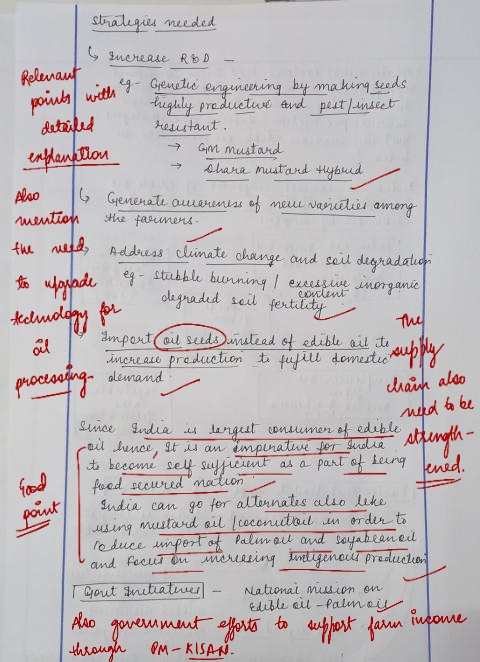 Strategies needed
↳ Increase R&D —
eg- Genetic engineering by making seeds
highly productive and pest/insect
resistant.
→ GM mustard
→ Dhara Mustard Hybrid
Relevant
points with
detailed
explanation
↳ Generate awareness of new varieties among
the farmers.
Address climate change and soil degradation
eg- stubble burning / excessive inorganic
content
degraded soil fertility
Import oil seeds instead of edible oil to
increase production to fulfill domestic
demand.
Also
mention
the need
to upgrade
technology for
oil
processing-
The
supply
chain also
need to be
strength-
ened.
Since India is largest consumer of edible
oil hence, It is an imperative for India
to become self sufficient as a part of being
food secured nation.
India can go for alternates also like
using mustard oil/coconutoil in order to
reduce import of Palmoil and soyabeanoil
and focus on increasing indigenous production
Good
point
Govt Initiatives — National mission on
Edible oil - Palmoil
Also government efforts to support farm income
through PM-KISAN.